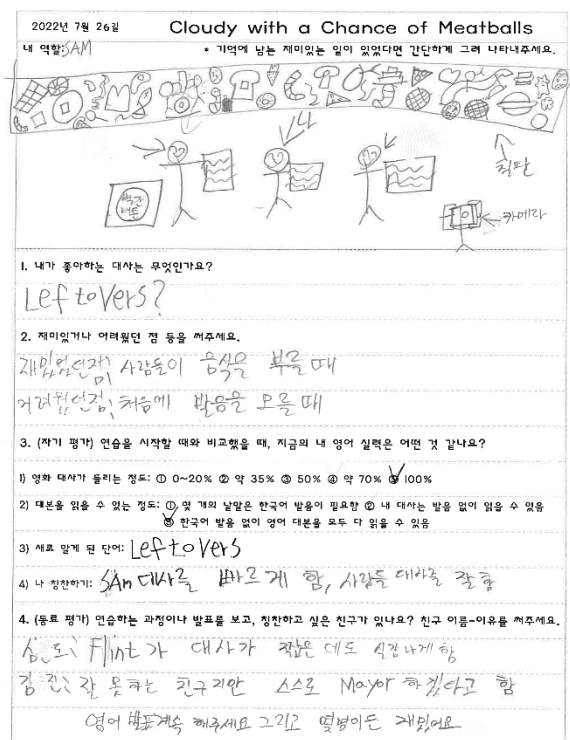 2022년 7월 26일 Cloudy with a Chance of Meatballs
내 역할: SAM * 기억에 남는 재미있는 일이 있었다면 간단하게 그려 나타내주세요.
칠판
빨간 버튼
카메라
1. 내가 좋아하는 대사는 무엇인가요?
Leftovers?
2. 재미있거나 어려웠던 점 등을 써주세요.
재밌었던점; 사람들이 음식을 부를 때
어려웠던점; 처음에 발음을 모를 때
3. (자기 평가) 연습을 시작할 때와 비교했을 때, 지금의 내 영어 실력은 어떤 것 같나요?
1) 영화 대사가 들리는 정도: ① 0~20% ② 약 35% ③ 50% ④ 약 70% ⑤ 100%
2) 대본을 읽을 수 있는 정도: ① 몇 개의 낱말은 한국어 발음이 필요함 ② 내 대사는 발음 없이 읽을 수 있음
③ 한국어 발음 없이 영어 대본을 모두 다 읽을 수 있음
3) 새로 알게 된 단어: Leftovers
4) 나 칭찬하기: SAM 대사를 빠르게 함, 사람들 대사를 잘함
4. (동료 평가) 연습하는 과정이나 발표를 보고, 칭찬하고 싶은 친구가 있나요? 친구 이름-이유를 써주세요.
심 도; Flint가 대사가 짧은 데도 실감나게 함
김 진; 잘 못하는 친구지만 스스로 Mayor 하겠다고 함
영어 발표계속 해주세요 그리고 몇명이든 재밌어요